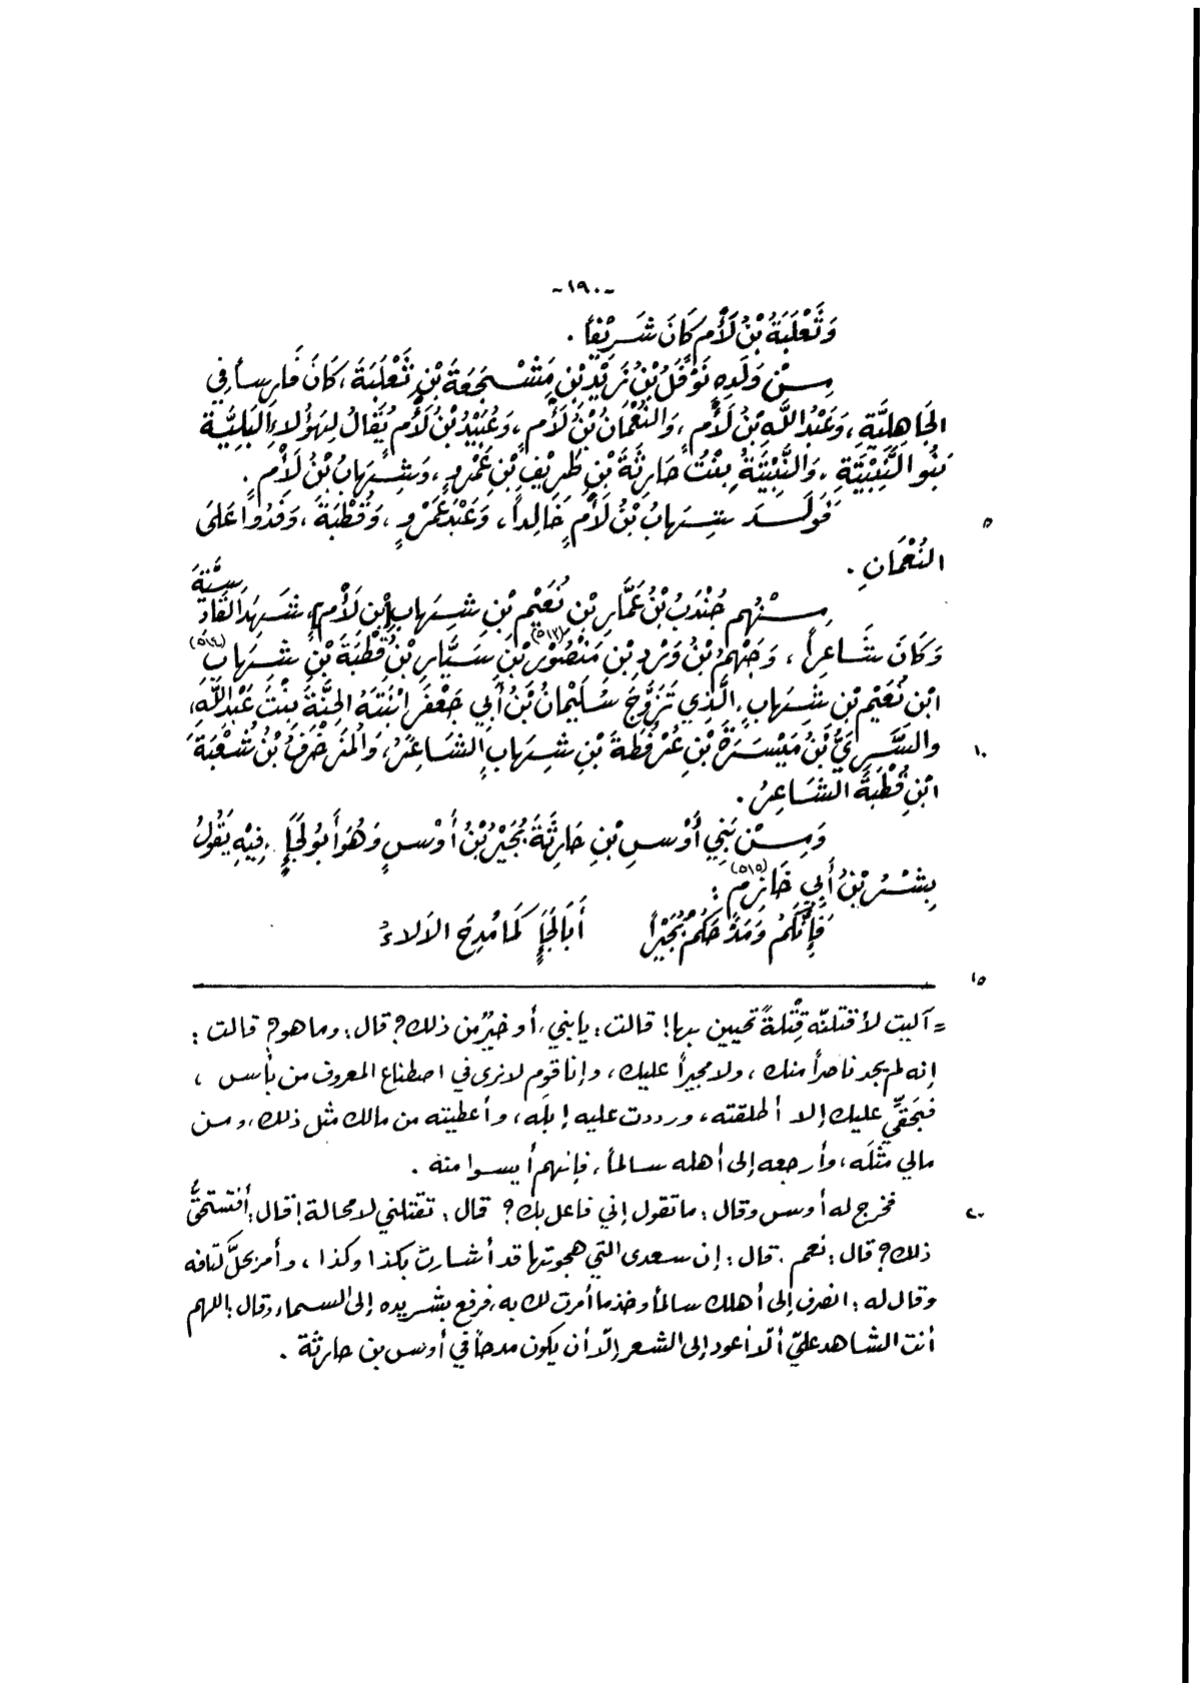 -١٩٠-
وَثَعْلَبَةُ بْنُ لَأْمٍ كَانَ شَرِيْفًا .
مِنْ وَلَدِهِ نَوْفَلُ بْنُ زَيْدِ بْنِ مَشْجَعَةَ بْنِ ثَعْلَبَةَ ، كَانَ فَارِسًا فِي
الجَاهِلِيَّةِ ، وَعَبْدُ اللَّهِ بْنُ لَأْمٍ ، وَالنُّعْمَانُ بْنُ لَأْمٍ ، وَعُبَيْدُ بْنُ لَأْمٍ يُقَالُ لِهَؤُلاءِ
بَنُو ، بِنْتُ حَارِثَةَ بْنِ طَرِيْفِ بْنِ عَمْرٍو ، وَشِهَابُ بْنُ لَأْمٍ .
فَوَلَدَ شِهَابُ بْنُ لَأْمٍ خَالِداً ، وَعَبْدَ عَمْرٍو ، وَقُطْبَةَ ، وَفَدُوا عَلَى
٥
النُعْمَانِ .
مِنْهُم جُنْدَبُ بْنُ عَمَّارِ بْنِ نُعَيْمِ بْنِ شِهَابِ [بْنِ لَأْمٍ] شَهِدَ القَادِسِيَّةَ
وَكَانَ شَاعِراً ، وَجَهْمُ بْنُ وَرْدِ بْنِ مَنْظُوْرِ (٥١٣) بْنِ سَيَّارِ بْنِ قُطْبَةَ بْنِ شِهَابِ (٥١٤)
ابْنِ نُعَيْمِ بْنِ شِهَابٍ ، الَّذِي تَزَوَّجَ سُلَيْمَانُ بْنُ أَبِي جَعْفَرٍ ابْنَتَهُ بِنْتَ عَبْدِاللَّهِ،
وَالسَّرِيُّ بْنُ مَيْسَرَةَ بْنِ عُرْفُطَةَ بْنِ شِهَابٍ الشَاعِرُ، وَالمُزَخْرَفُ بْنُ شُعْبَةَ
١٠
ابْنِ قُطْبَةَ الشَاعِرُ .
وَمِنْ بَنِي أَوْسِ بْنِ حَارِثَةَ بُجَيْرُ بْنُ أَوْسٍ وَهُوَ أَبُو لَجَإٍ ، فِيْهِ يَقُولُ
بِشْرُ بْنُ أَبِي خَازِمٍ (٥١٥) :
فَإِنَّكُمُ وَمَدْحَكُمُ بُجَيْراً أَبَا لَجَإٍ كَمَا مُدِحَ الأَلاءُ
١٥
= آليت لأقتلنّه قِتْلةً تحيين بها! قالت : يابني، أو خيرٌ من ذلك؟ قال : وما هو؟ قالت :
إنه لم يجد ناصراً منك ، ولا مجيراً عليك ، وإنا قوم لا نرى في اصطناع المعروف من بأس ،
فبحقّي عليك إلا أطلقته ، ورددت عليه إبله ، وأعطيته من مالك مثل ذلك، ومن
مالي مثلَه ، وأرجعه إلى أهله سالماً ، فإنهم أيسوا منه .
فخرج له أوس وقال : ما تقول إني فاعل بك؟ قال : تقتلني لا محالة! قال : أفتستحقُّ
٢٠
ذلك؟ قال : نعم . قال : إن سعدى التي هجوتها قد أشارت بكذا وكذا ، وأمر بحلّ كتافه
وقال له : انصرف إلى أهلك سالماً وخذ ما أمرت لك به ، فرفع بشر يده إلى السماء وقال : اللهم
أنت الشاهد عليّ ألّا أعود إلى الشعر إلّا أن يكون مدحاً في أوس بن حارثة .